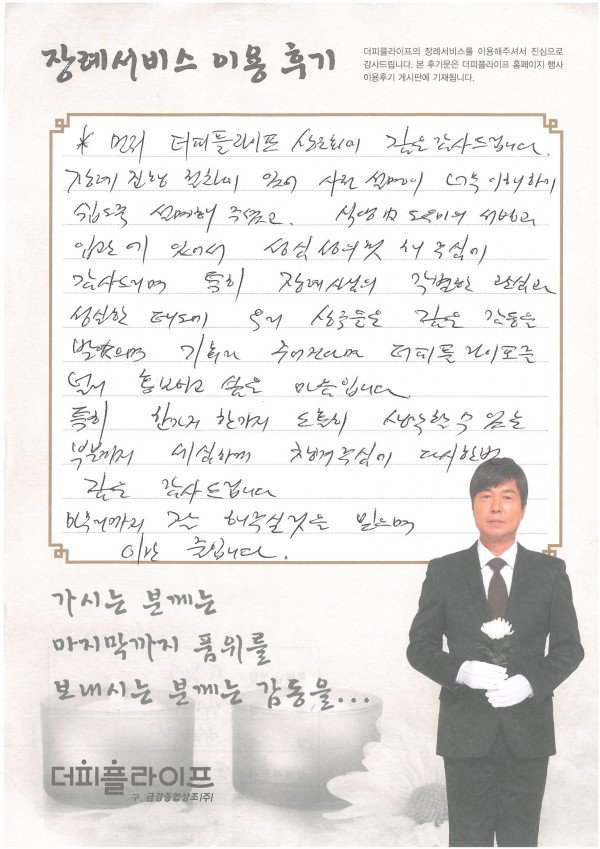 장례서비스 이용 후기
더피플라이프의 장례서비스를 이용해주셔서 진심으로
감사드립니다. 본 후기문은 더피플라이프 홈페이지 행사
이용후기 게시판에 기재됩니다.
* 먼저 더피플라이프 상조회에 깊은 감사드립니다.
장례 진행 절차에 있어 사전 설명이 너무 이해하기
쉽도록 설명해 주셨고. 식당 도우미의 서빙과
입관에 있어서 성심 성의껏 해 주심에
감사드리며 특히 장례사님의 각별한 관심과
성실한 태도에 우리 상주들은 깊은 감동을
받았으며 기회가 주어진다면 더피플라이프를
널리 홍보하고 싶은 마음입니다.
특히 한가지 한가지 소홀히 생각할 수 있는
부분까지 세심하게 챙겨주심에 다시한번
깊은 감사드립니다
마무리까지 잘 해주실것을 믿으며
이만 줄입니다.
가시는 분께는
마지막까지 품위를
보내시는 분께는 감동을...
더피플라이프
구. 금강종합상조(주)